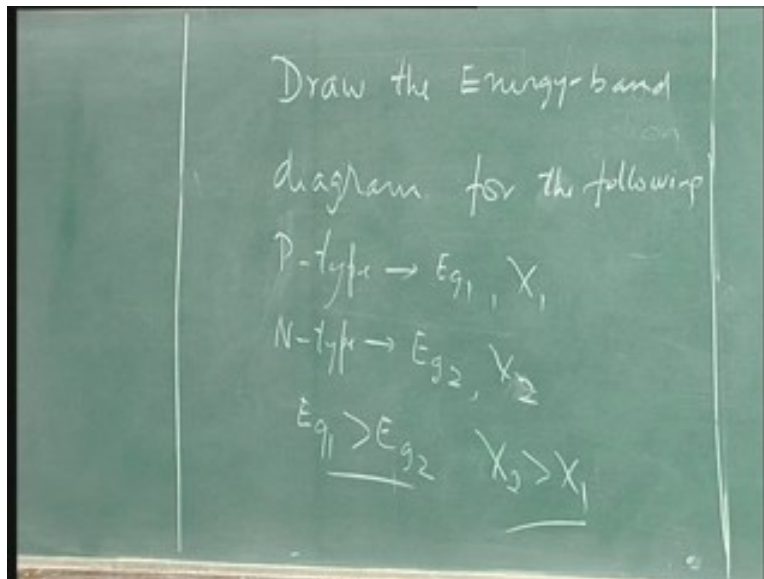 Draw the Energy-band
diagram for the following
P-type → Eg1, X1
N-type → Eg2, X2
Eg1 > Eg2 X2 > X1